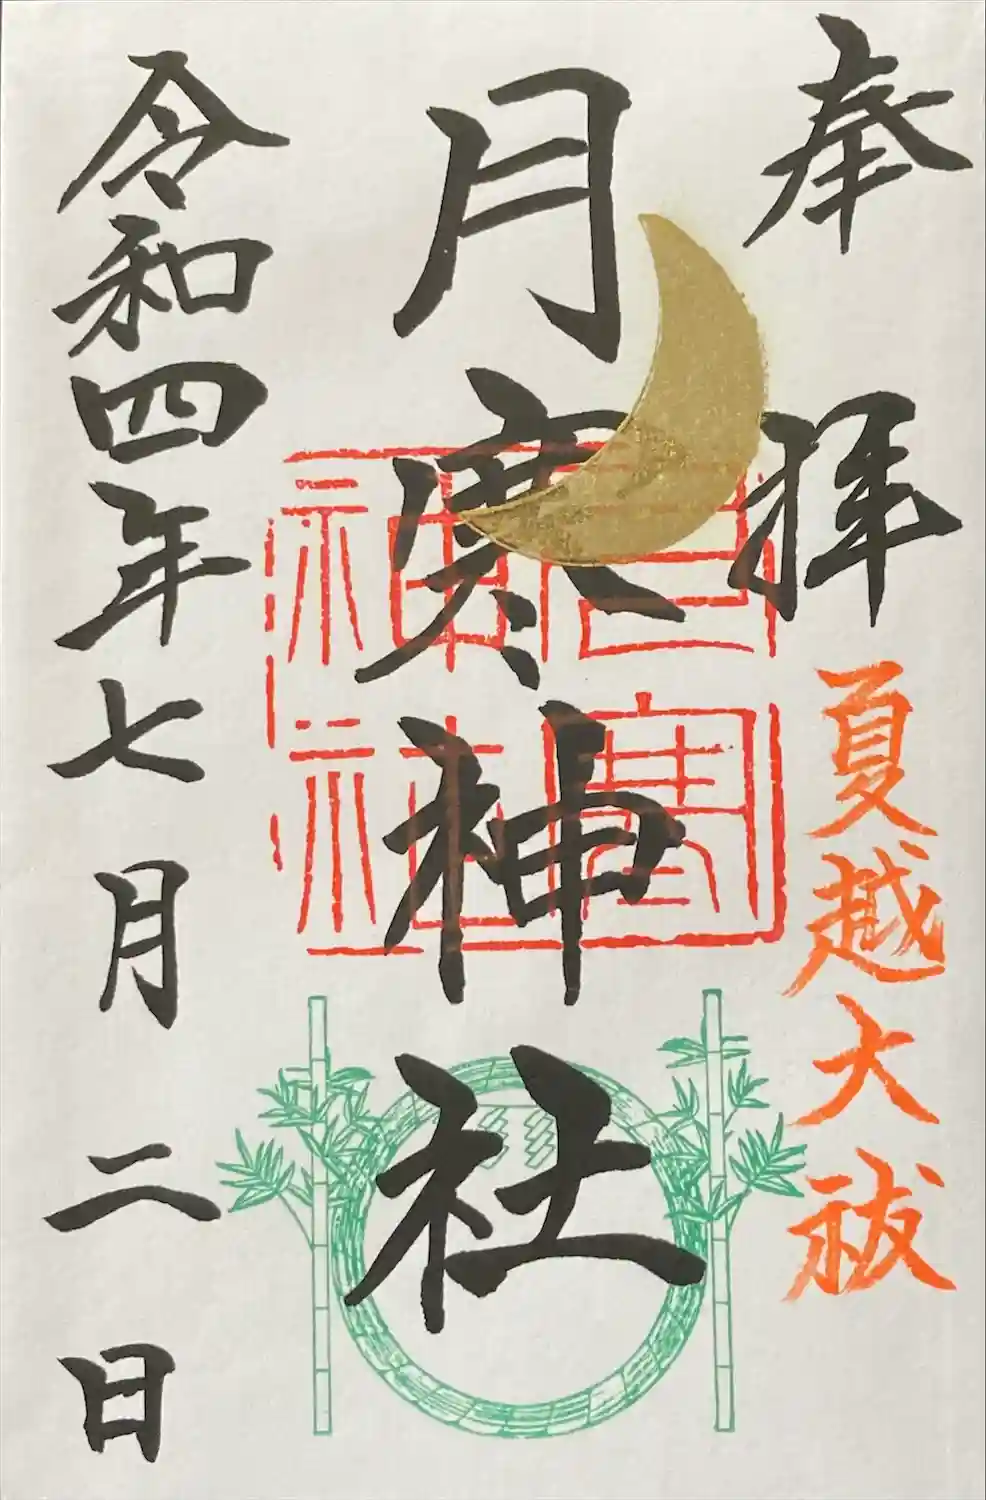 奉拝
夏越大祓
月寒神社
令和四年七月二日
月寒
神社